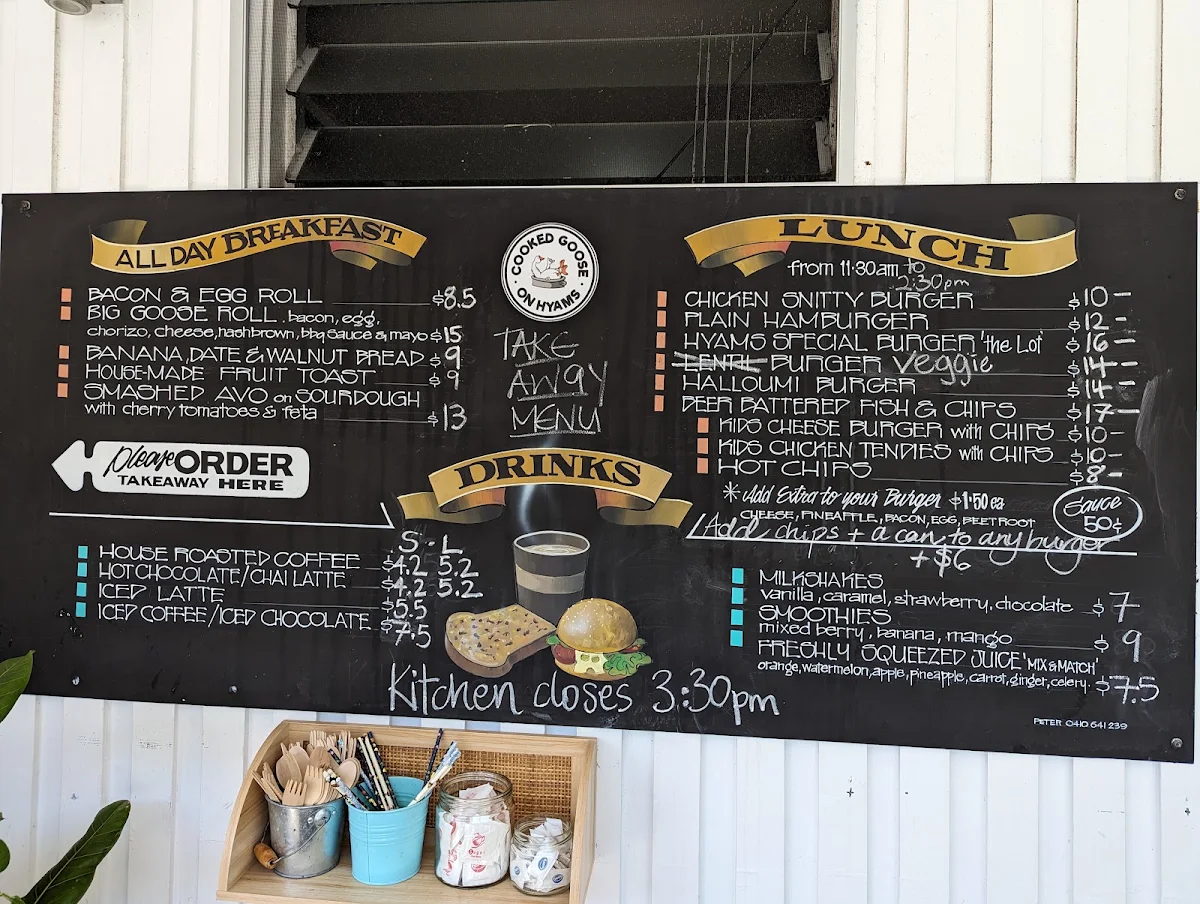 ALL DAY BREAKFAST
BACON & EGG ROLL $8.5
BIG GOOSE ROLL. bacon, egg,
chorizo, cheese, hashbrown, bbq sauce & mayo $15
BANANA, DATE & WALNUT BREAD $9
HOUSE-MADE FRUIT TOAST $9
SMASHED AVO on SOURDOUGH
with cherry tomatoes & feta $13
Please ORDER
TAKEAWAY HERE
COOKED GOOSE
ON HYAMS
TAKE
AWAY
MENU
LUNCH
from 11:30am to
2:30pm
CHICKEN SNITTY BURGER $10-
PLAIN HAMBURGER $12-
HYAMS SPECIAL BURGER 'the Lot' $16-
LENTIL BURGER veggie $14-
HALLOUMI BURGER $14-
BEER BATTERED FISH & CHIPS $17-
KIDS CHEESE BURGER with CHIPS $10-
KIDS CHICKEN TENDIES with CHIPS $10-
HOT CHIPS $8-
* Add Extra to your Burger $1.50 ea
CHEESE, PINEAPPLE, BACON, EGG, BEETROOT
Sauce
50¢
Add chips + a can to any burger
+$6
DRINKS
S L
HOUSE ROASTED COFFEE $4.2 5.2
HOT CHOCOLATE/CHAI LATTE $4.2 5.2
ICED LATTE $5.5
ICED COFFEE/ICED CHOCOLATE $7.5
MILKSHAKES
vanilla, caramel, strawberry, chocolate $7
SMOOTHIES
mixed berry, banana, mango $9
FRESHLY SQUEEZED JUICE 'MIX & MATCH'
orange, watermelon, apple, pineapple, carrot, ginger, celery. $7.5
Kitchen closes 3:30pm
PETER 0410 641 239